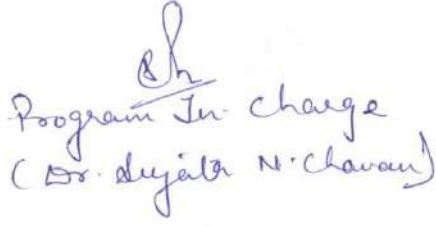 Program In-charge
(Dr. Sujata N. Chavan)